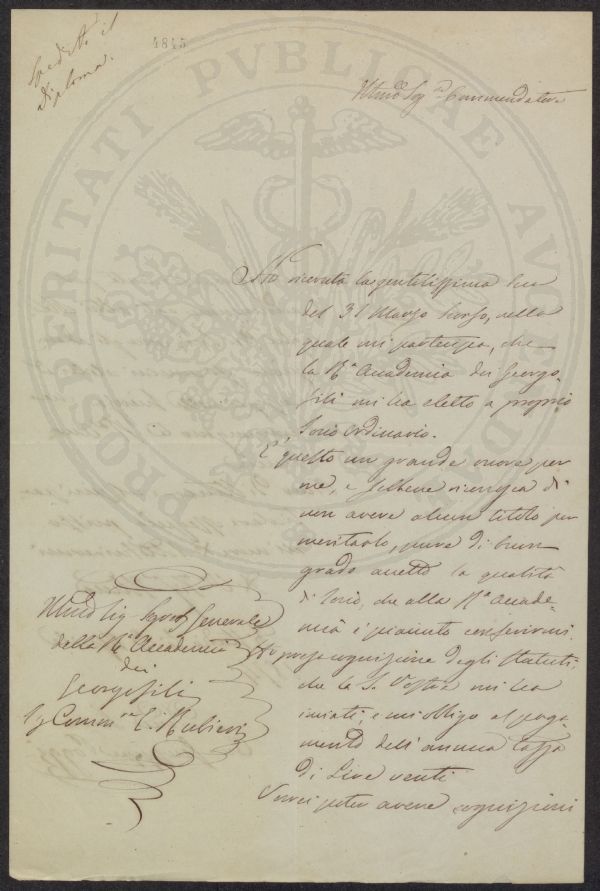 Spedito il
diploma.
4845
Illmo Sig. Commendatore
Ho ricevuta la gentilissima sua
del 31 Marzo scorso, nella
quale mi partecipa, che
la Rª Accademia dei Georgo-
fili mi ha eletto a proprio
Socio Ordinario.
È questo un grande onore per
me, e sebbene riconosca di
non avere alcun titolo per
meritarlo, pure di buon
grado accetto la qualità
di Socio, che alla Rª Accade-
mia è piaciuto conferirmi.
Ho preso cognizione degli Statuti
che la S. Vostra mi ha
inviati; e mi obbligo al paga-
mento dell'annua tassa
di Lire venti
Vorrei poter avere cognizioni
Illmo Sig. Segret Generale
della Rª Accademia
dei
Georgofili
Sig Comm E. Rubieri
PROSPERITATI PVBLICAE AVGENDAE